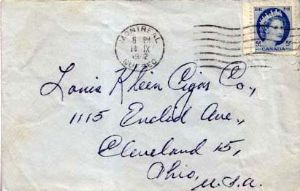 MONTREAL
6 PM
14 IX
QUEBEC
5¢ 5¢
CANADA
Louis Klein Cigar Co.,
1115 Euclid Ave.,
Cleveland 15,
Ohio,
U.S.A.